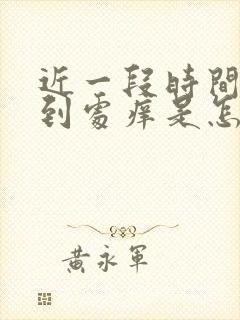 近一段時間
到處痒是怎
黃永軍